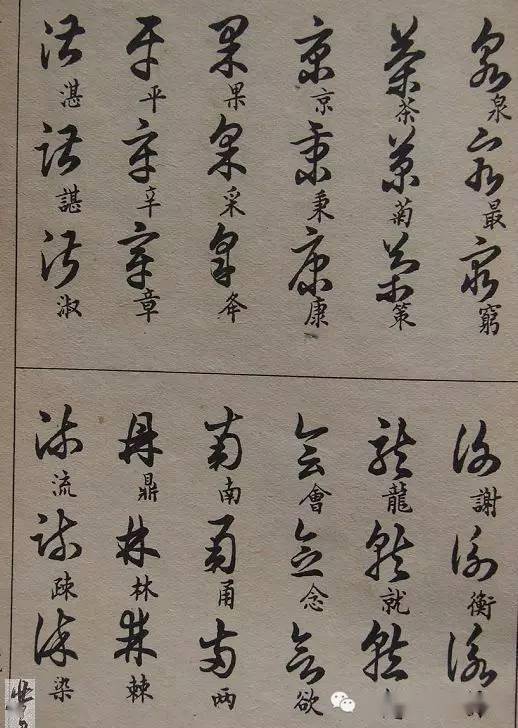 泉最窮
茶菊策
京秉康
果采
平辛章
湛諶淑
謝衡
龍就
會念欲
南甬両
鼎林棘
流疎染